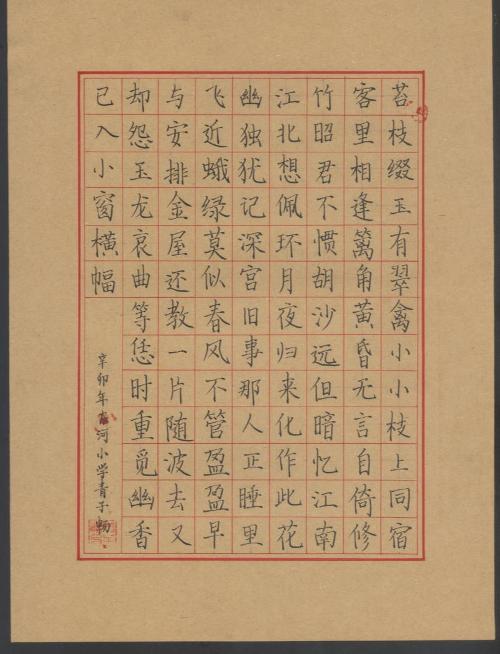 苔枝缀玉有翠禽小小枝上同宿
客里相逢篱角黄昏无言自倚修
竹昭君不惯胡沙远但暗忆江南
江北想佩环月夜归来化作此花
幽独犹记深宫旧事那人正睡里
飞近蛾绿莫似春风不管盈盈早
与安排金屋还教一片随波去又
却怨玉龙哀曲等恁时重觅幽香
已入小窗横幅
辛卯年河小学青子畅